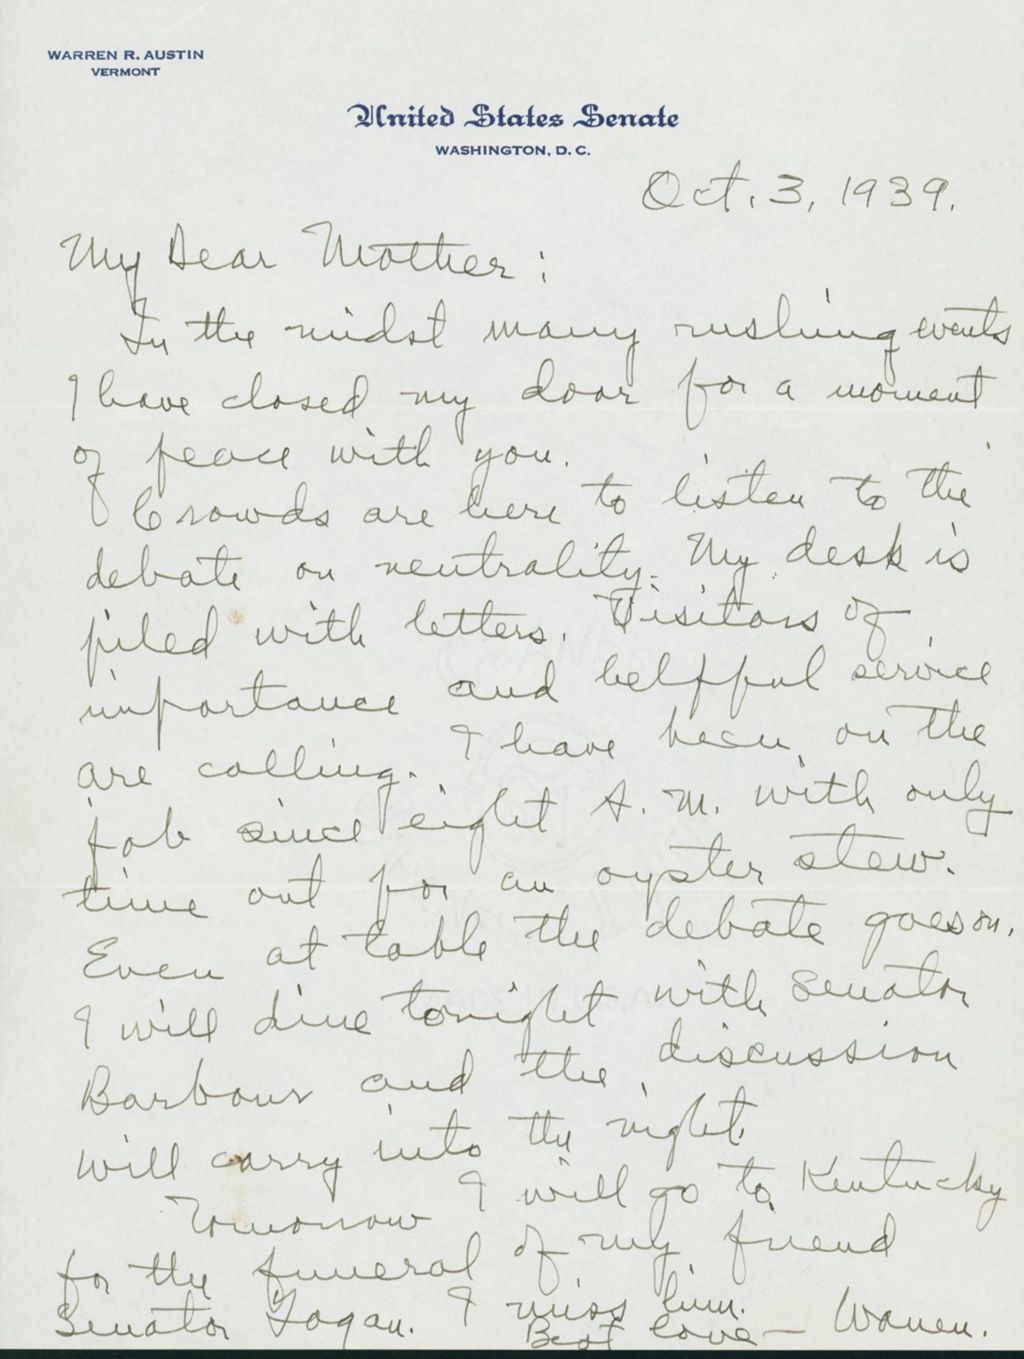 WARREN R. AUSTIN
VERMONT
United States Senate
WASHINGTON, D. C.
Oct. 3, 1939.
My Dear Mother:
In the midst many rushing events
I have closed my door for a moment
of peace with you.
Crowds are here to listen to the
debate on neutrality. My desk is
piled with letters. Visitors of
importance and helpful service
are calling. I have been on the
job since eight A. M. with only
time out for an oyster stew.
Even at table the debate goes on.
I will dine tonight with Senator
Barbour and the discussion
will carry into the night.
Tomorrow I will go to Kentucky
for the funeral of my friend
Senator Logan. I miss him.
Best love — Warren.